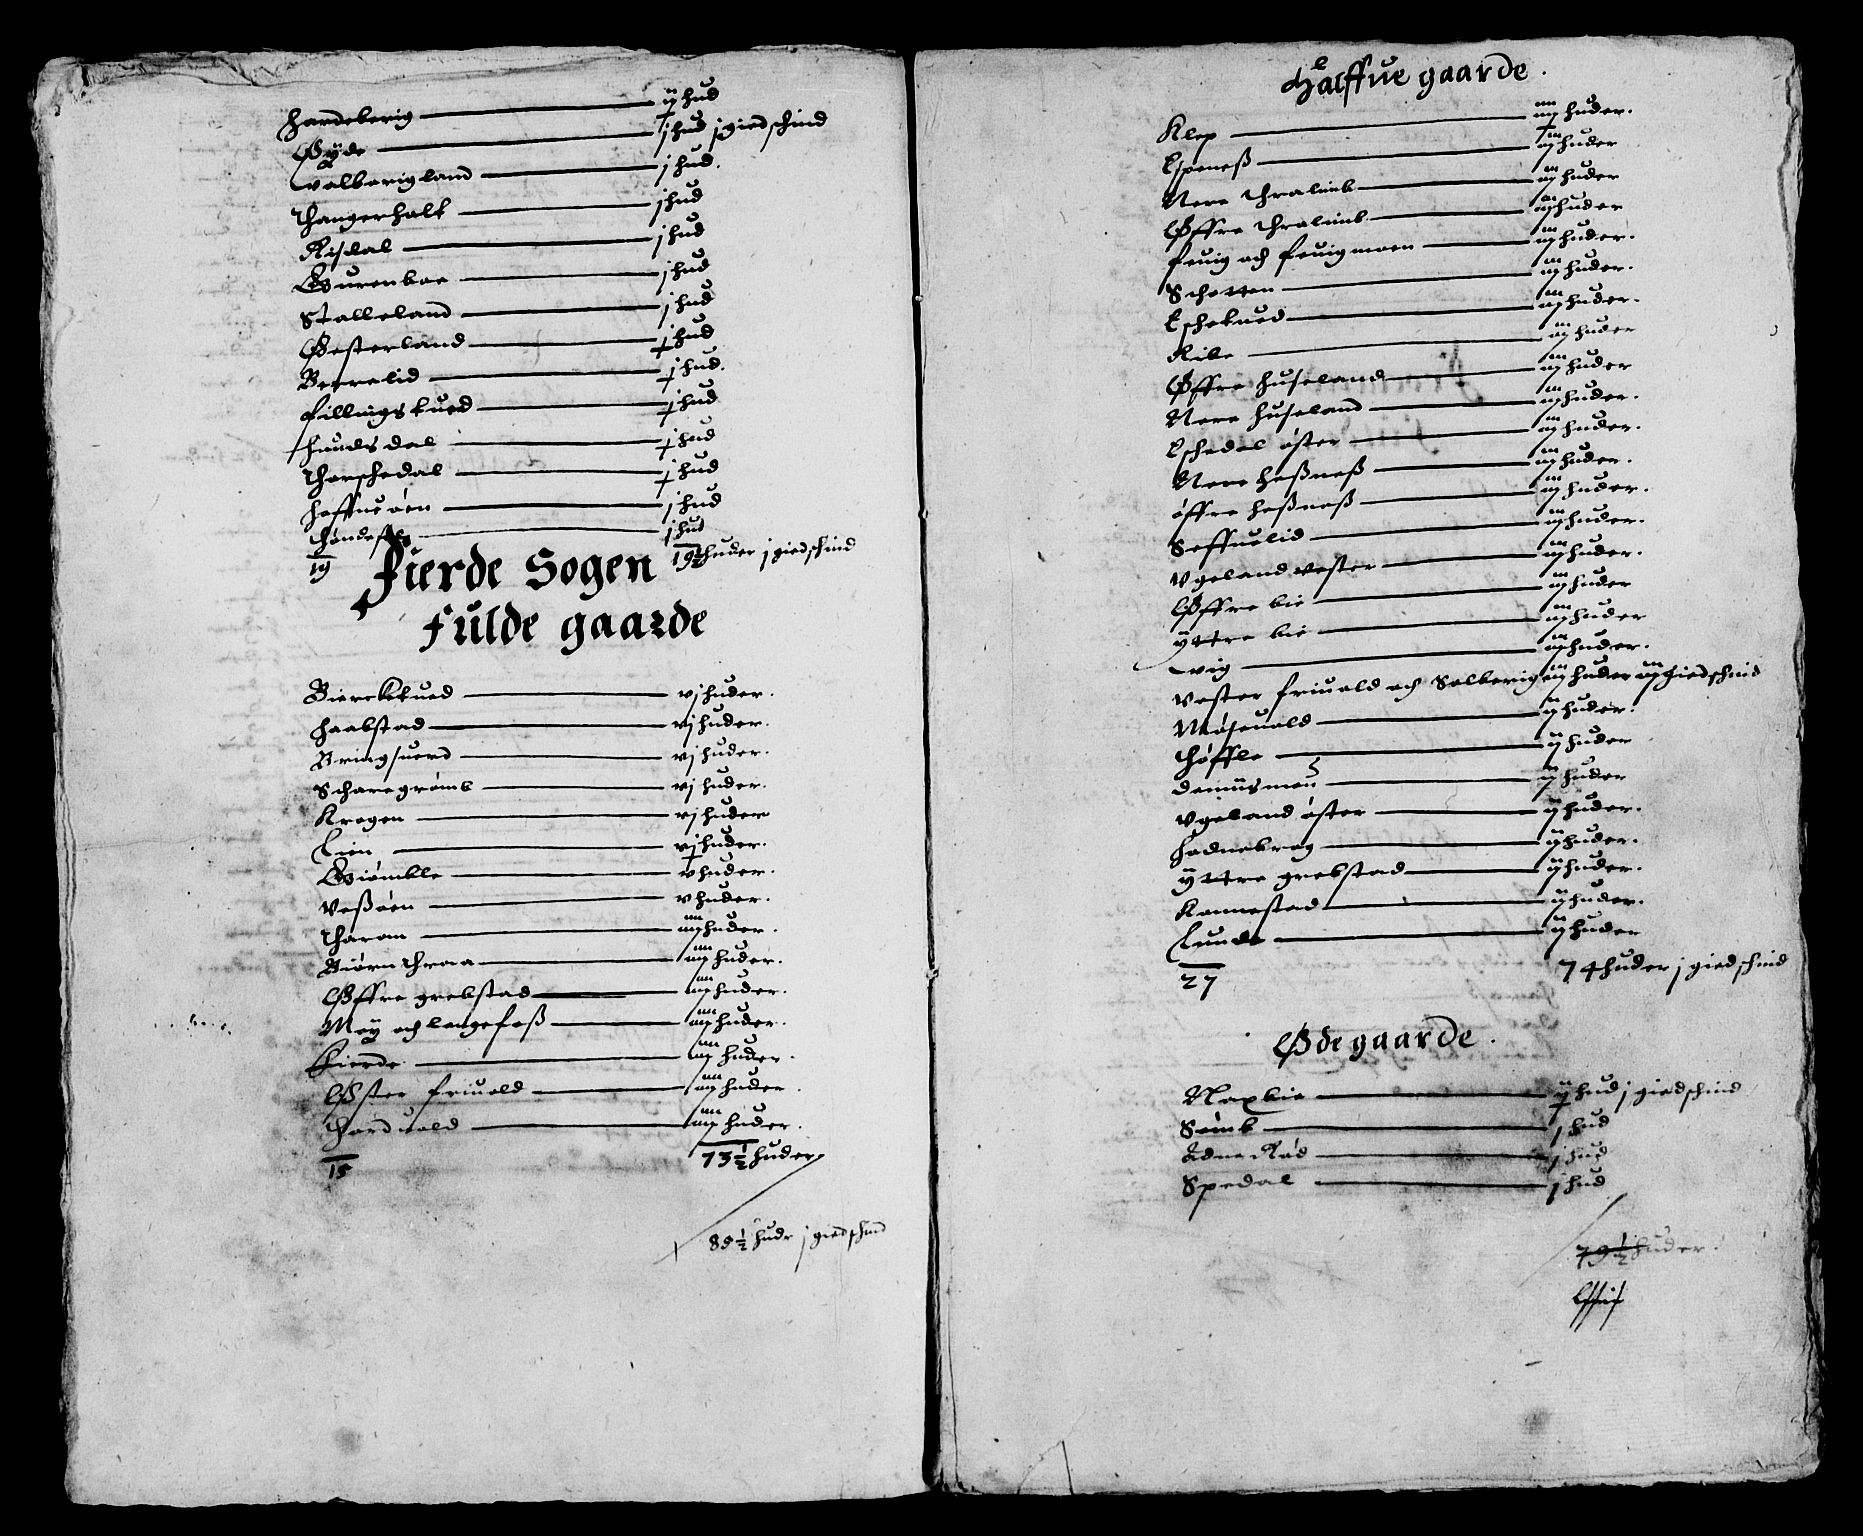 Hardeberig — ij hud
Øÿde — j hud j giedschind
Valberigland — j hud.
Thangerhalt — j hud
Risdal — j hud
Gurenboe — j hud
Stalleland — j hud
Østerland — j hud
Berrelid — j hud.
Fillingskued — j hud
Hundsdal — j hud
Thorschedal — j hud
Heffueøen — j hud
j hud
19
19½ huder j giedschind
Fierde Sogen
Fulde gaarde
Bierckkued — vj huder.
Haabstad — vj huder.
Bringsuerd — vj huder.
Scharegrømb — vj huder.
Kragen — vj huder
Lien — vj huder.
Giømble — v huder.
Veßøen — v huder.
Tharom — iiij huder.
Biørnthraa — iiij huder.
Øffre grebstad — iiij huder.
Moÿ och langefeß — iiij huder.
Fierde — iiij huder.
Øster friuold — iiij huder.
Thorduold — iiij huder.
15
73½ huder
85½ hudr j giedschind
Halffue gaarde.
Klep — iiij huder.
Espeneß — iij huder
Nere Thralimb — iij huder
Øffre Thralimb — iij huder
Feuig och feuigmoen — iij huder.
Schotten — iij huder.
Eschekued — iij huder.
Ribe — iij huder
Øffre Huseland — iij huder
Nere Huseland — iij huder.
Eschedal øster — iij huder.
Nere Heßneß — iij huder.
Øffre Heßneß — iij huder.
Seffuelid — iij huder.
Vgeland vester — iij huder.
Øffre bie — iij huder
ÿttre bie — iij huder
Vig — iij huder.
Vester friuold och Solberig iij huder iij giedschind
Møseuold — ij huder.
Høffle — ij huder
ij huder
Vgeland øster — ij huder.
Hodnebrog — ij huder.
ÿttre grebstad — ij huder.
Konnestad — ij huder.
Lunde — ij huder
27
74 huder j giedschind
Øde gaarde.
Naxbie — ij hud j giedschind
Sømb — j hud
Adnerød — j hud
Spedal — j hud
79½ huder.